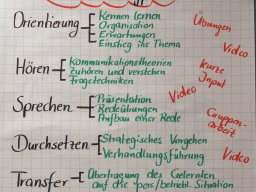 Kennen lernen
Orientierung
Organisation
Erwartungen
Einstieg ins Thema
Übungen
Video
Hören
Kommunikationstheorien
zuhören und verstehen
Fragetechnik
kurze
Input
Video
Sprechen
Präsentation
Redeübungen
Aufbau einer Rede
Gruppen-
arbeit
Durchsetzen
Strategisches Vorgehen
Verhandlungsführung
Video
Transfer
Übertragung des Gelernten
auf die pers./betriebl. Situation